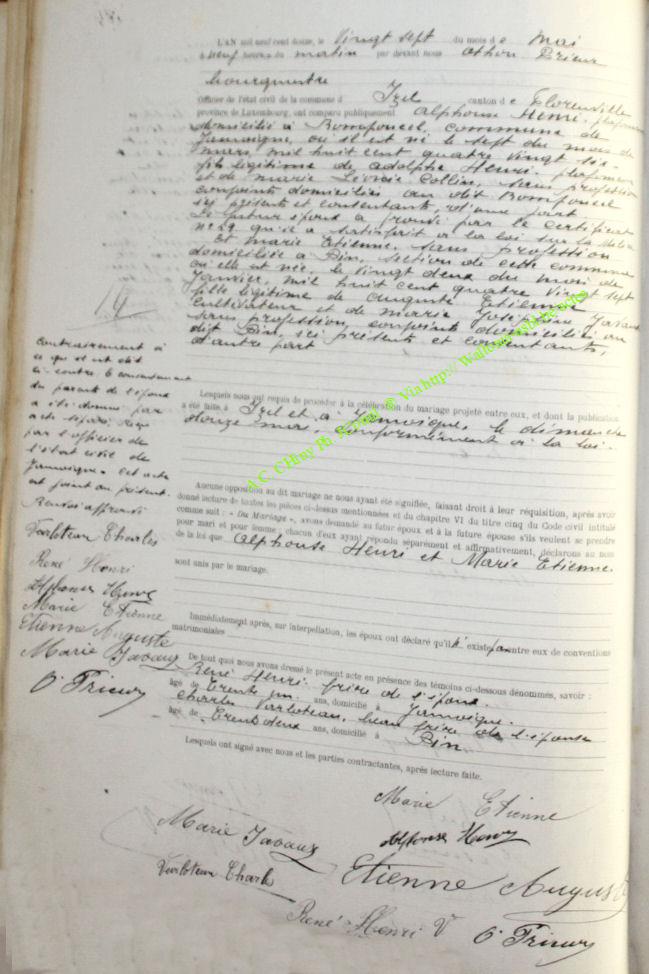 L'AN mil neuf cent douze, le vingt sept du mois de mai
à neuf heures du matin par devant nous Othon Prieur
bourgmestre
Officier de l'état civil de la commune d Izel canton de Florenville
province de Luxembourg, ont comparu publiquement Alphonse Henri, plafonneur
domicilié à Romponcel, commune de
Jamoigne, où il est né le sept du mois de
mars, mil huit cent quatre vingt six
fils légitime de Adolphe Henri, plafonneur
et de Marie Léonie Collin, sans profession
conjoints domiciliés au dit Romponcel
ici présents et consentants, d'une part
Le futur époux a prouvé par le certificat
n° 29 qu'il a satisfait à la loi sur la Milice
Et Marie Etienne, sans profession
domiciliée à Pin, section de cette commune
où elle est née, le vingt deux du mois de
Janvier, mil huit cent quatre vingt sept
fille légitime de Auguste Etienne
cultivateur et de Marie Joséphine Javaux
sans profession, conjoints domiciliés au
dit Pin, ici présents et consentants,
d'autre part
14
contrairement à
ce qui est dit
ci-contre le consentement
des parents de l'époux
a été donné par
acte séparé reçu
par l'officier de
l'état civil de
Jamoigne. Cet acte
est joint au présent.
Renvoi approuvé
Varloteau Charles
René Henri
Alphonse Henry
Marie Etienne
Etienne Auguste
Marie Javaux
O Prieur
Lesquels nous ont requis de procéder à la célébration du mariage projeté entre eux, et dont la publication
a été faite à Izel et à Jamoigne, le dimanche
douze mai, conformément à la loi.
Aucune opposition au dit mariage ne nous ayant été signifiée, faisant droit à leur réquisition, après avoir
donné lecture de toutes les pièces ci-dessus mentionnées et du chapitre VI du titre cinq du Code civil intitulé
comme suit : « Du Mariage », avons demandé au futur époux et à la future épouse s'ils veulent se prendre
pour mari et pour femme ; chacun d'eux ayant répondu séparément et affirmativement, déclarons au nom
de la loi que Alphonse Henri et Marie Etienne
sont unis par le mariage.
Immédiatement après, sur interpellation, les époux ont déclaré qu'il n'existe pas entre eux de conventions
matrimoniales
De tout quoi nous avons dressé le présent acte en présence des témoins ci-dessous dénommés, savoir :
René Henri, frère de l'époux
âgé de trente un ans, domicilié à Jamoigne.
Charles Varloteau, beau frère de l'épouse
âgé de trente deux ans, domicilié à Pin
Lesquels ont signé avec nous et les parties contractantes, après lecture faite.
Marie Etienne
Marie Javaux
Alphonse Henry
Varloteau Charles
Etienne Auguste
René Henri
O Prieur